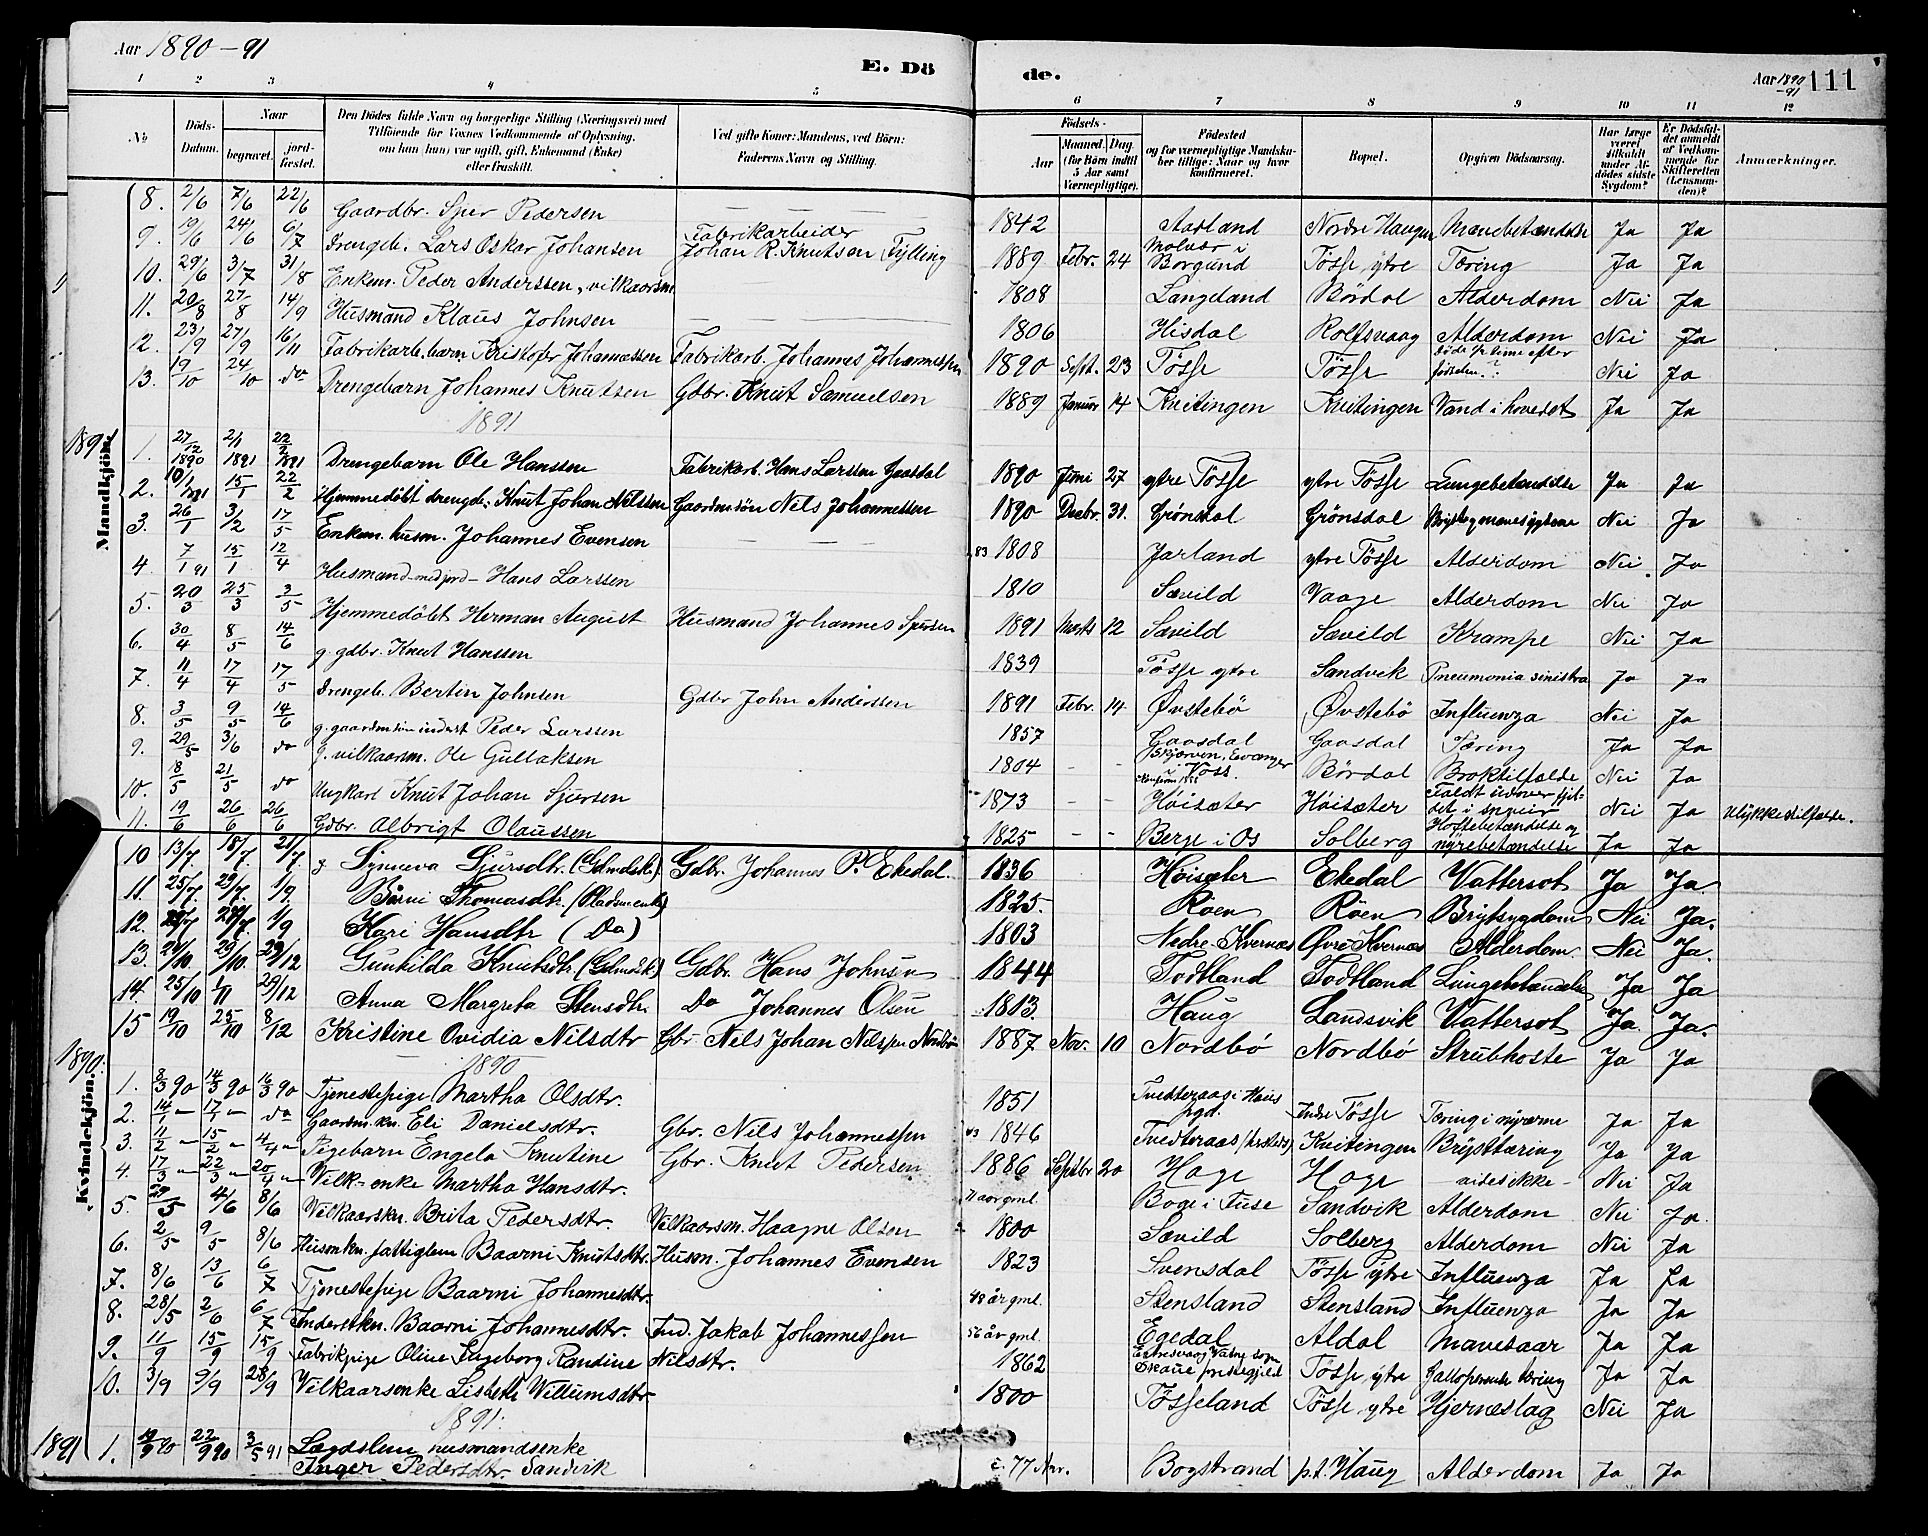 Aar 1890-91
E. Döde.
Aar 1890-91 111
1 2 3 4 5 6 7 8 9 10 11 12
No Döds-Datum. Naar begravet. jordfæstet. Den Dödes fulde Navn og borgerlige Stilling (Næringsvei) med Tilföiende for Voxnes Vedkommende af Oplysning, om han (hun) var ugift, gift, Enkemand (Enke) eller fraskilt. Ved gifte Koner: Mandens, ved Börn: Faderens Navn og Stilling. Födsels- Aar Maaned. Dag. (for Börn indtil 5 Aar samt Værnepligtige). Födested og for værnepligtige Mandskaber tillige: Naar og hvor konfirmeret. Bopæl. Opgiven Dödsaarsag. Har Læge været tilkaldt under Afdödes sidste Sygdom? Er Dödsfaldet anmeldt af Vedkommende for Skifteretten (Lensmanden)? Anmærkninger.
Mandkjön.
8. 2/6 7/6 22/6 Gaardbr. Sjur Pedersen 1842 Aarland Nordre Haugen Mavebetændelse Ja Ja
9. 19/6 24/6 6/7 Drengeb. Lars Oskar Johansen Fabrikarbeider Johan R. Knutsen Fylling 1889 Febr. 24 Molvær i Borgund Tösse, ytre Tæring Ja Ja
10. 29/6 3/7 31/8 Enkem. Peder Anderssen, vilkaarsm. 1808 Langeland Bördal Alderdom Nei Ja
11. 20/8 27/8 14/9 Husmand Klaus Johnsen 1806 Hisdal Rolfsvaag Alderdom Nei Ja
12. 23/9 27/9 16/11 Fabrikarb. barn Kristofer Johannessen Fabrikarb. Johannes Johannessen 1890 Sept. 23 Tösse Tösse döde ½ time efter födselen Nei Ja
13. 19/10 24/10 do Drengebarn Johannes Knutsen Gdbr. Knut Samuelsen 1889 Januar 14 Kvitingen Kvitingen Vand i hovedet Ja Ja
1891
1891 1. 27/12 1890 2/1 1891 22/2 1891 Drengebarn Ole Hanssen Fabrikarb. Hans Larssen Gaasdal 1890 Juni 27 ytre Tösse ytre Tösse Lungebetændelse Ja Ja
2. 10/1 1891 15/1 22/2 Hjemmedöbt drengeb. Knut Johan Nilssen Gaardmsön Nils Johannessen 1890 Decbr. 31. Grönsdal Grönsdal Nei Ja
3. 26/1 3/2 17/5 Enkem. husm. Johannes Evensen 83 1808 Jarland ytre Tösse Alderdom Nei Ja
4. 7/1 91 15/1 12/4 Husmand med jord - Hans Larssen 1810 Sævild Vaage Alderdom Nei Ja
5. 20/3 25/3 3/5 Hjemmedöbt Herman August Husmand Johannes Sjursen 1891 Marts 12 Sævild Sævild Krampe Nei Ja
6. 30/4 8/5 14/6 g. gdbr. Knut Hanssen 1839 Tösse ytre Sandvik Pneumonia sinistra Ja Ja
7. 11/4 17/4 17/5 Drengeb. Bertin Johnsen Gdbr John Anderssen 1891 Febr. 14 Øvstebö Øvstebö Influenza Nei Ja
8. 3/5 9/5 14/6 g. gaardmsön inderst Peder Larssen 1857 Gaasdal Gaasdal Tæring Ja Ja
9. 29/5 3/6 do g. vilkaarsm. Ole Gullaksen 1804 - - Skjerven, Evanger i Voss. Bördal Broktilfælde Nei Ja
10. 18/5 21/5 do Ungkarl Knut Johan Sjursen 1873 - - Höisæter Höisæter Faldt udover fjeldet Nei Ja Ulykkestilfælde.
11. 19/6 26/6 26/6 Gdbr. Albrigt Olaussen 1825 - - Berge i Os Solberg Hoftebetændelse og nyrebetændelse Ja Ja
Kvindekjön.
10 13/7. 18/7. 21/7. g Synneva Sjursdtr. (Gdmdsk) Gdbr. Johannes P. Ekedal 1836 Höisæter Ekedal Vattersot Ja Ja
11. 25/7. 29/7. 1/9. Barni Thomasdtr. (Pladsmenke) 1825. Röen Röen Brystsygdom Nei Ja.
12. 1/9 Kari Hansdtr (Do) 1803 Nedre Kvernæs Øvre Kvernæs Alderdom. Nei Ja.
13. 29/10. 29/12 Gunhilda Knutsdtr. (Gdmdsk) Gdbr. Hans Johnsen 1844 Todtland Todtland Lungebetændelse Ja Ja
14. 25/10 1/11 29/12 Anna Margreta Stensdtr. Do Johannes Olsen 1813. Haug Landsvik Vattersot Ja Ja.
15 19/10 25/10 8/12 Kristine Ovidia Nilsdtr Gbr. Nils Johan Nilssen Nordbö 1887 Nov. 10 Nordbö Nordbö Strubhoste Ja Ja
1890
1890: 1. 8/3 90 14/3 90 16/3 90 Tjenestepige Martha Olsdtr. 1851 Tvedteraas i Haus pgd. Indre Tösse Tæring i nyrerne Ja Ja
2. 14/1 - 17/1 - do Gaardm. kn. Eli Danielsdtr. Gbr. Nils Johannessen 43 1846 Tvedteraas Kvitingen Brysttæring Ja Ja
3. 11/2 - 15/2 - 4/4 - Pigebarn Engela Knutine Gbr. Knut Pedersen 1886 Septbr 20 Hage Hage vides ikke - Nei Ja
4. 17/3 - 22/3 - 20/4 - Vilk-enke Martha Hansdtr. 71 aar gml. Boge i Fuse Sandvik Alderdom Nei Ja.
5. 29/5 4/6 8/6 Vilkaarskn. Brita Pedersdtr. Vilkaarsm. Haagne Olsen 1800 Sævild Solberg Alderdom Nei Ja
6. 2/5 9/5 8/6 Husmkn. fattiglem Baarni Knutsdtr. Husm. Johannes Evensen 1823 Svensdal Tösse ytre Influenza Ja Ja
7. 8/6 13/6 6/7 Tjenestepige Baarni Johannesdtr. 48 år gml. Stensland Stensland Influenza Ja Ja
8. 28/5 2/6 6/7 Inderstkn. Baarni Johannesdtr. Ind. Jakob Johannessen 56 år gml. Egedal Aldal Mavesaar Ja Ja
9. 11/9 15/9 15/9 Fabrikpige Oline Ingeborg Randine Nilsdtr. 1862 Vatne sogn Skaue præstegjeld Tösse, ytre Galloperende tæring Ja Ja
10. 3/9 9/9 28/9 Vilkaarsenke Lisbeth Willumsdtr 1800 Tösseland Tösse, ytre Hjerneslag Nei Ja
1891:
1891 1. 90 22/9 90 3/5 91 Lægdslem husmandsenke Inger Pedersdtr. Sandvik c. 77 Aar. Bogstrand p.t. Haug Alderdom Ja Ja